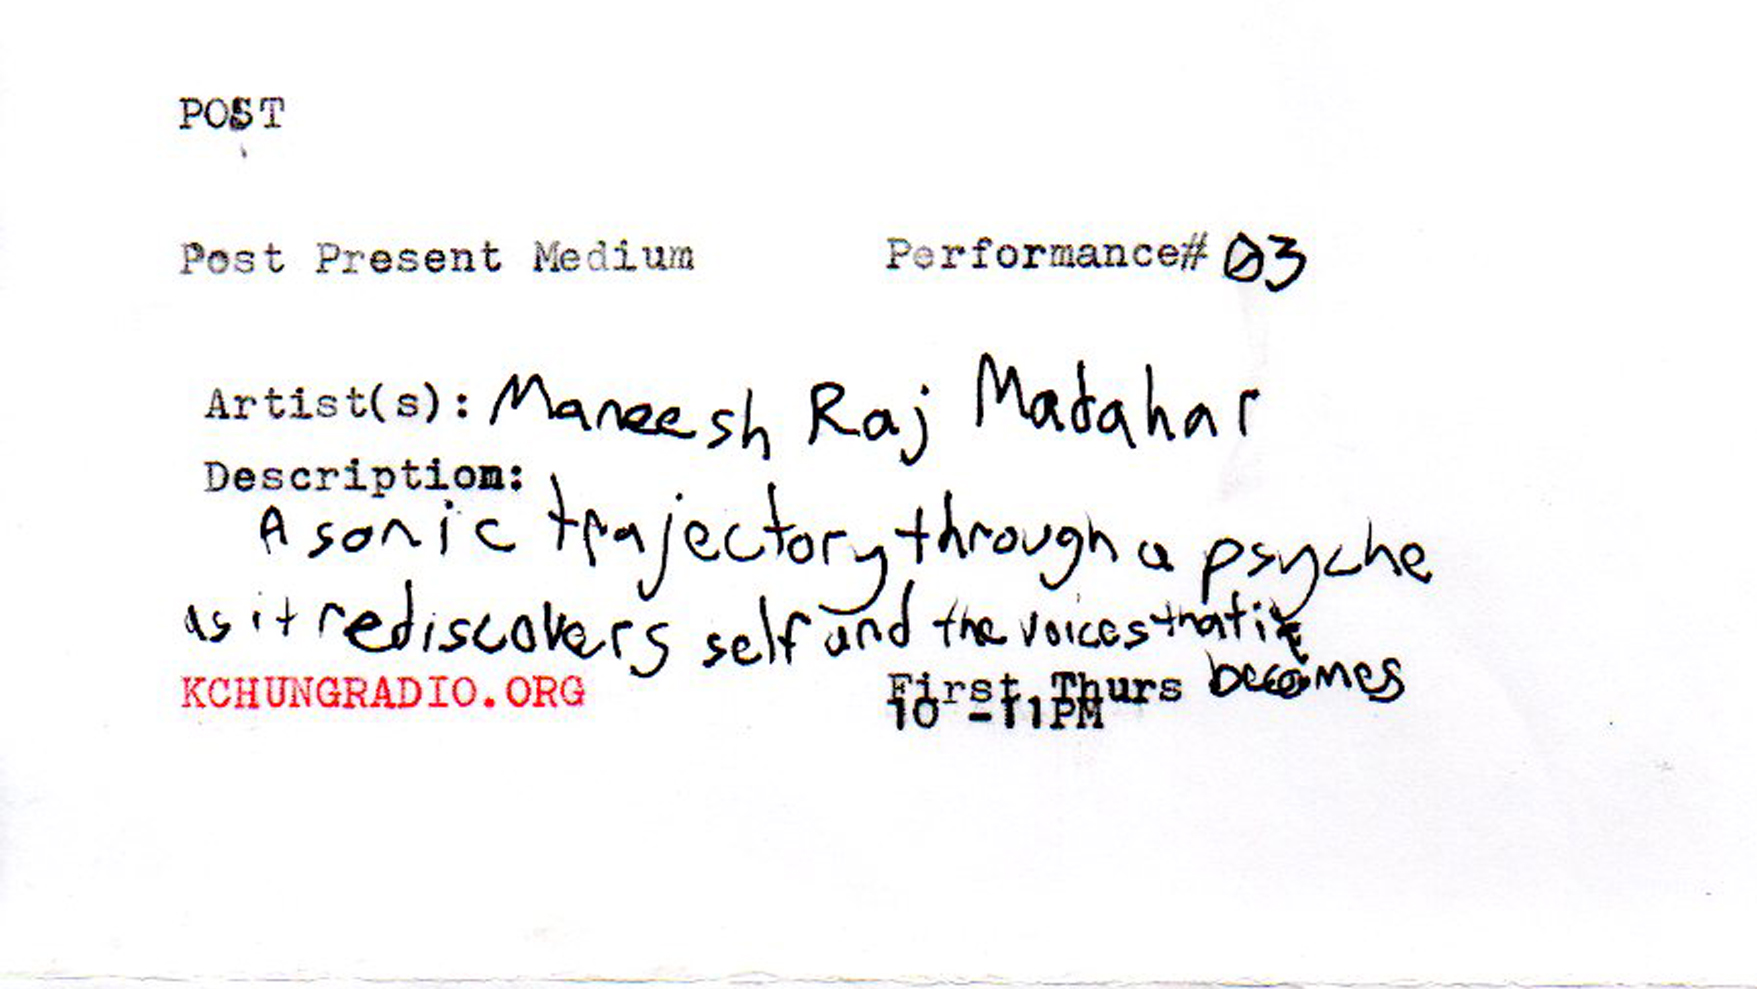 POST
Post Present Medium Performance# 03
Artist(s): Maneesh Raj Madahar
Description:
A sonic trajectory through a psyche
as it rediscovers self and the voices that it
becomes
KCHUNGRADIO.ORG First Thurs
10 -11PM